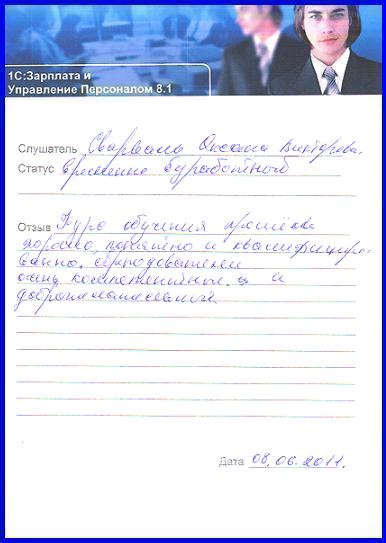 1С:Зарплата и
Управление Персоналом 8.1
Слушатель Оксана Викторовна
Статус временно безработной
Отзыв Курс обучения
хорошо, понятно и квалифициро-
ванно.
очень и
доброжелательный.
Дата 08.06.2011.